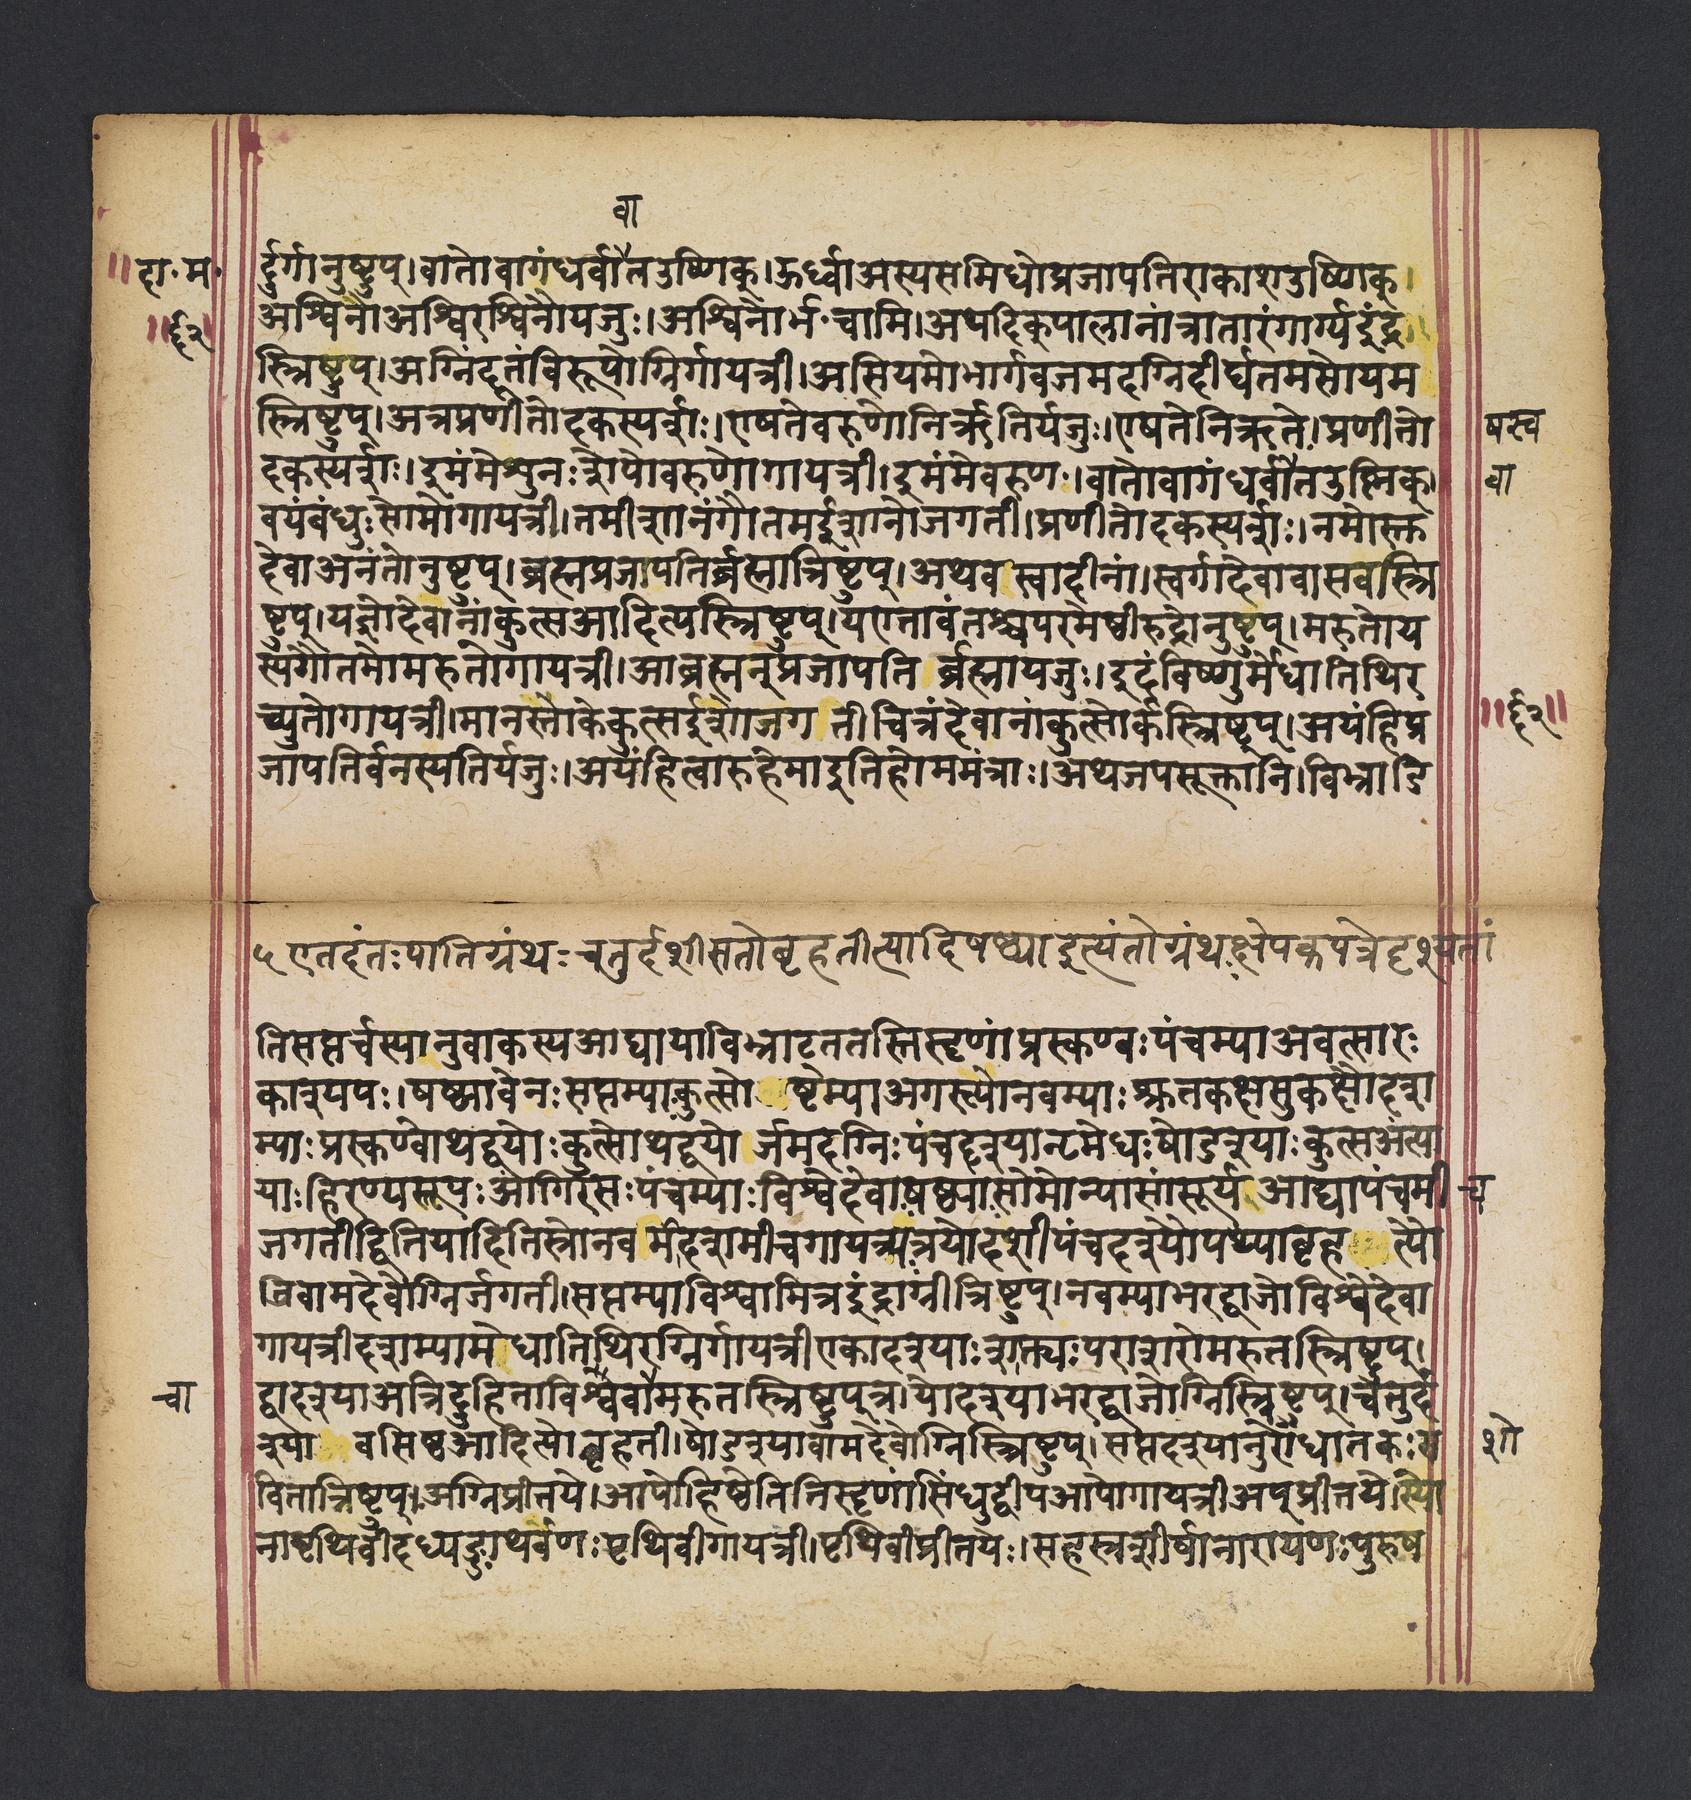 वा
॥हा॰म॰
र्दुर्गानुष्टुप्।वातोवागंधर्वौतउष्णिक्।ऊर्ध्वाअस्यसमिधोप्रजापतिराकाशउष्णिक्।
अश्विनौअश्विरश्विनौयजुः।अश्विनोर्भ॰चामि।अथदिक्पालानांत्रातारंगार्ग्यइंद्र
स्त्रिष्टुप्।अग्निंदूतंविरूपोग्निर्गायत्री।असियमोभार्गवजमदग्निदीर्घतमसोयम
स्त्रिष्टुप्।अत्रप्रणीतोदकस्पर्शः।एषतेवरुणोनिर्ऋतिर्यजुः।एषतेनिऋते।प्रणीतो
दकस्पर्शः।इमंमेशुनःशेपोवरुणोगायत्री।इमंमेवरुणः।वातोवागंधर्वौतउष्निक्।
वा
वयंबंधुःसोमोगायत्री।तमीशानंगौतमर्ईशानोजगती।प्रणीतोदकस्पर्शः।नमोस्त
देवाअनंतोनुष्टुप्।ब्रह्मप्रजापतिर्ब्रह्मात्रिष्टुप्।अथवस्वादीनां।स्वर्गादेवावासवस्त्रि
ष्टुप्।यज्ञोदेवानांकुत्सआदित्यस्त्रिष्टुप्।यएतावंतश्चपरमेष्ठीरुद्रोनुष्टुप्।मरुतोय
स्यगौतमोमरुतोगायत्री।आब्रह्मन्प्रजापति र्ब्रह्मायजुः।इदंविष्णुर्मेधातिथिर
च्युतोगायत्री।मानस्तोकेकुत्सर्ईशोजग तीचित्रंदेवानांकुत्सोर्कस्त्रिष्टुप्।अयंहिप्र
जापतिर्वनस्पतिर्यजुः।अयंहित्वारुहेमाइतिहोममंत्राः।अथजपसूक्तानि।विभ्राडि
५ एतदंतःपातिग्रंथःचतुर्दशीसतोबृहतीत्यादिषष्ठ्याइत्यंतोग्रंथःक्षेपकपत्रेदृश्यतां
तिसप्तर्चस्यानुवाकस्यआद्यायाविभ्राट्ततस्तिसृणांप्रस्कण्वःपंचम्याअवत्सारः
काश्यपः।षष्ठ्यावेनःसप्तम्याकुत्सो ष्टम्याअगस्त्योनवम्याःश्रुतकक्षसुकक्षौदशा
म्याःप्रस्कण्वोथद्वयोःकुत्सोथद्वयो र्जमदग्निःपंचदश्यानृमेधःषोडश्याःकुत्सअंत्या
याःहिरण्यस्तूपःआंगिरसःपंचम्याःविश्वेदेवाषष्ठ्यासोमोन्यासांसूर्य आद्यापंचमी
च
जगतीद्वितियादितिस्त्रोनव मीदशमीचगायत्र्यत्रयोदशीपंचदश्योपथ्याबृह त्यो
त्रिवामदेवोग्निर्जगती।सप्तम्याविश्वामित्रइंद्राग्नीत्रिष्टुप्।नवम्याभरद्वाजोविश्वेदेवा
गायत्रीदशम्यामे धातिथिरग्निर्गायत्रीएकादश्याःशक्त्यःपराशरोमरुतस्त्रिष्टुप्।
चा
द्वादश्याअत्रिदुहिताविश्ववारामरुतस्त्रिष्टुप्त्र।योदश्याभरद्वाजोग्निस्त्रिष्टुप्।चतुर्द
श्या वसिष्ठआदित्योबृहती।षोडश्यावामदेवोग्निस्त्रिष्टुप्।सप्तदश्यानुशोधानकःस
शो
वितात्रिष्टुप्।अग्निप्रीतये।आपोहिष्ठेतितिसृणांसिंधुद्वीपआपोगायत्रीअप्प्रीतये।स्यो
नापृथिवीदध्यङ्ङाथर्वणःपृथिवीगायत्री।पृथिवीप्रीतयेः।सहस्त्रशीर्षानारायणःपुरुष